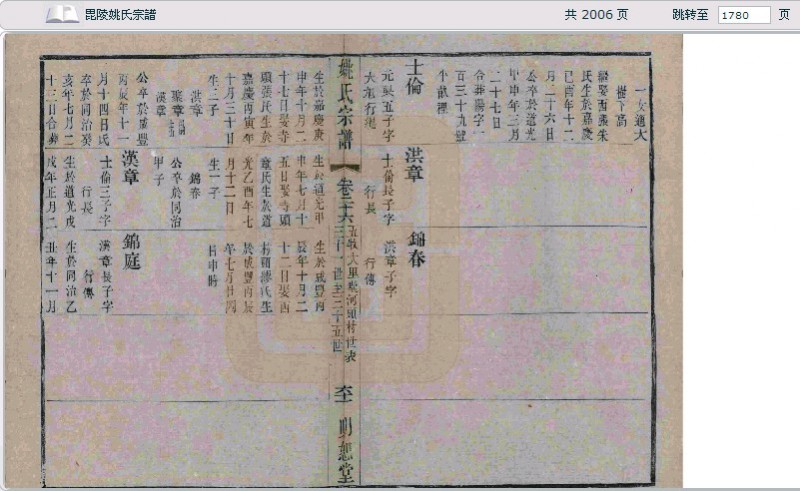 毘陵姚氏宗譜
共 2006 页
跳转至 1780 页
一女適大
樹下高
氏生於嘉慶
己酉年十二
月二十六日
公卒於道光
甲申年三月
二十七日
合葬陽字一
百三十九號
士倫
元聚五子字
大江行
洪章
士倫長子字
行長
錦春
洪章子字
行傳
姚氏宗譜
卷三十六
明恕堂
生於嘉慶庚
申年十月二
十七日娶寺
頭張氏生於
嘉慶丙寅年
十月三十日
生三子
洪章
漢章
公卒於咸豐
丙辰年十一
月十四日氏
卒於同治癸
亥年七月二
十三日合葬
生於道光甲
申年七月十
五日娶寺頭
章氏生於道
光乙酉年七
月十二日
生一子
錦春
公卒於同治
甲子
漢章
士倫三子字
行長
生於道光戊
戌年正月二
生於咸豐丙
辰年十月二
十二日娶西
於咸豐丙辰
年七月廿四
日申時
錦庭
漢章長子字
行傳
生於同治乙
丑年十一月